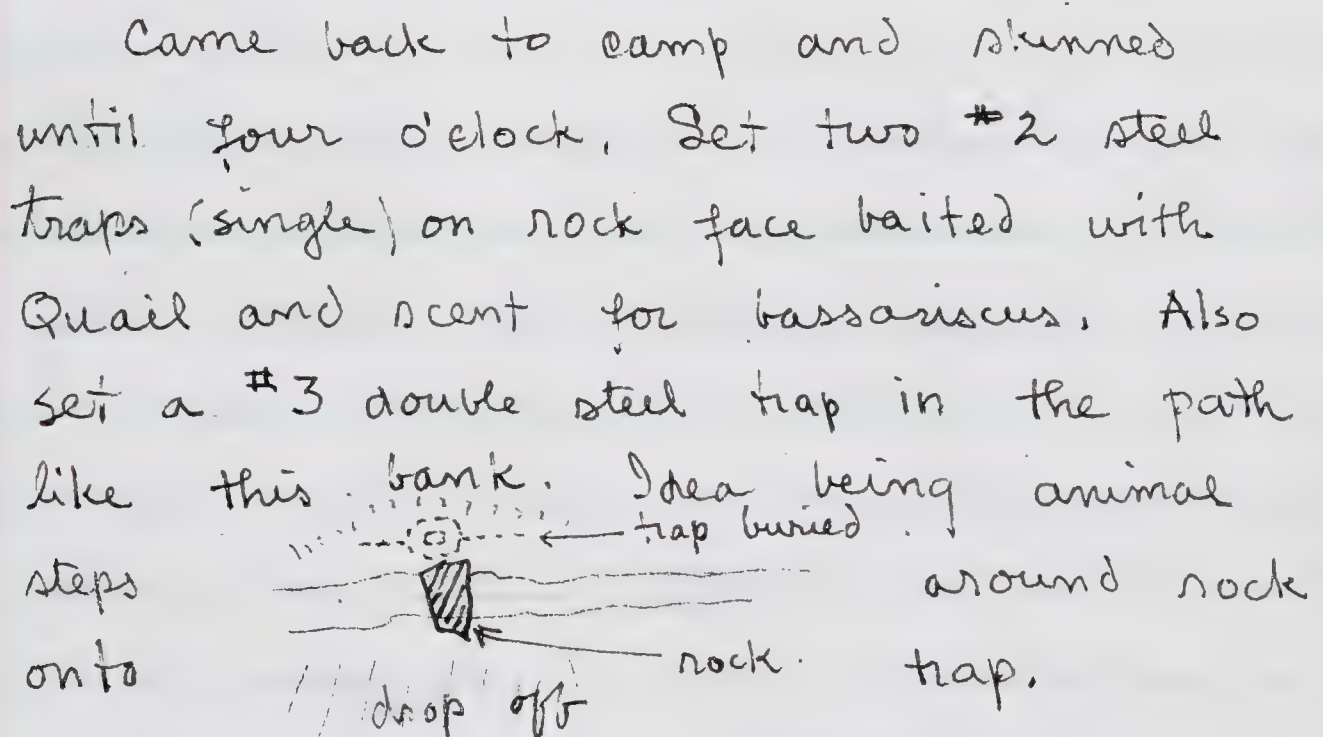 Came back to camp and skinned
until four o'clock. Set two #2 steel
traps (single) on rock face baited with
Quail and scent for bassariscus. Also
set a #3 double steel trap in the path
like this. bank. Idea being animal
trap buried
steps around rock
onto rock. trap.
drop off